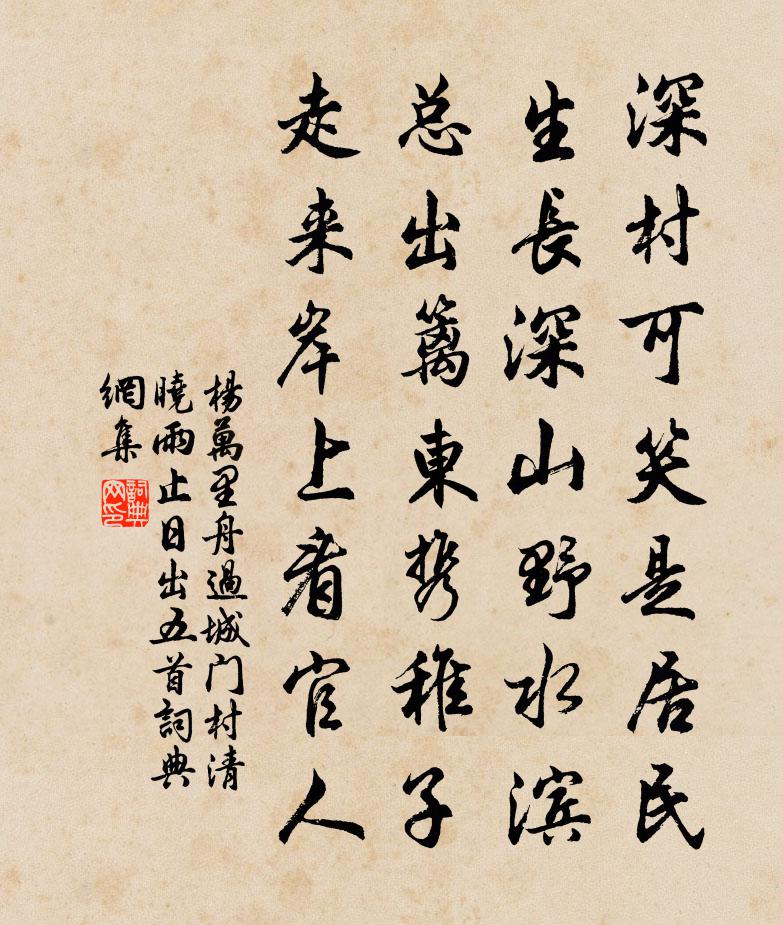 深村可笑是居民
生長深山野水滨
总出篱東携稚子
走来岸上看官人
楊萬里舟過城门村清
曉雨止日出五首詞典
網集
詞典
网印